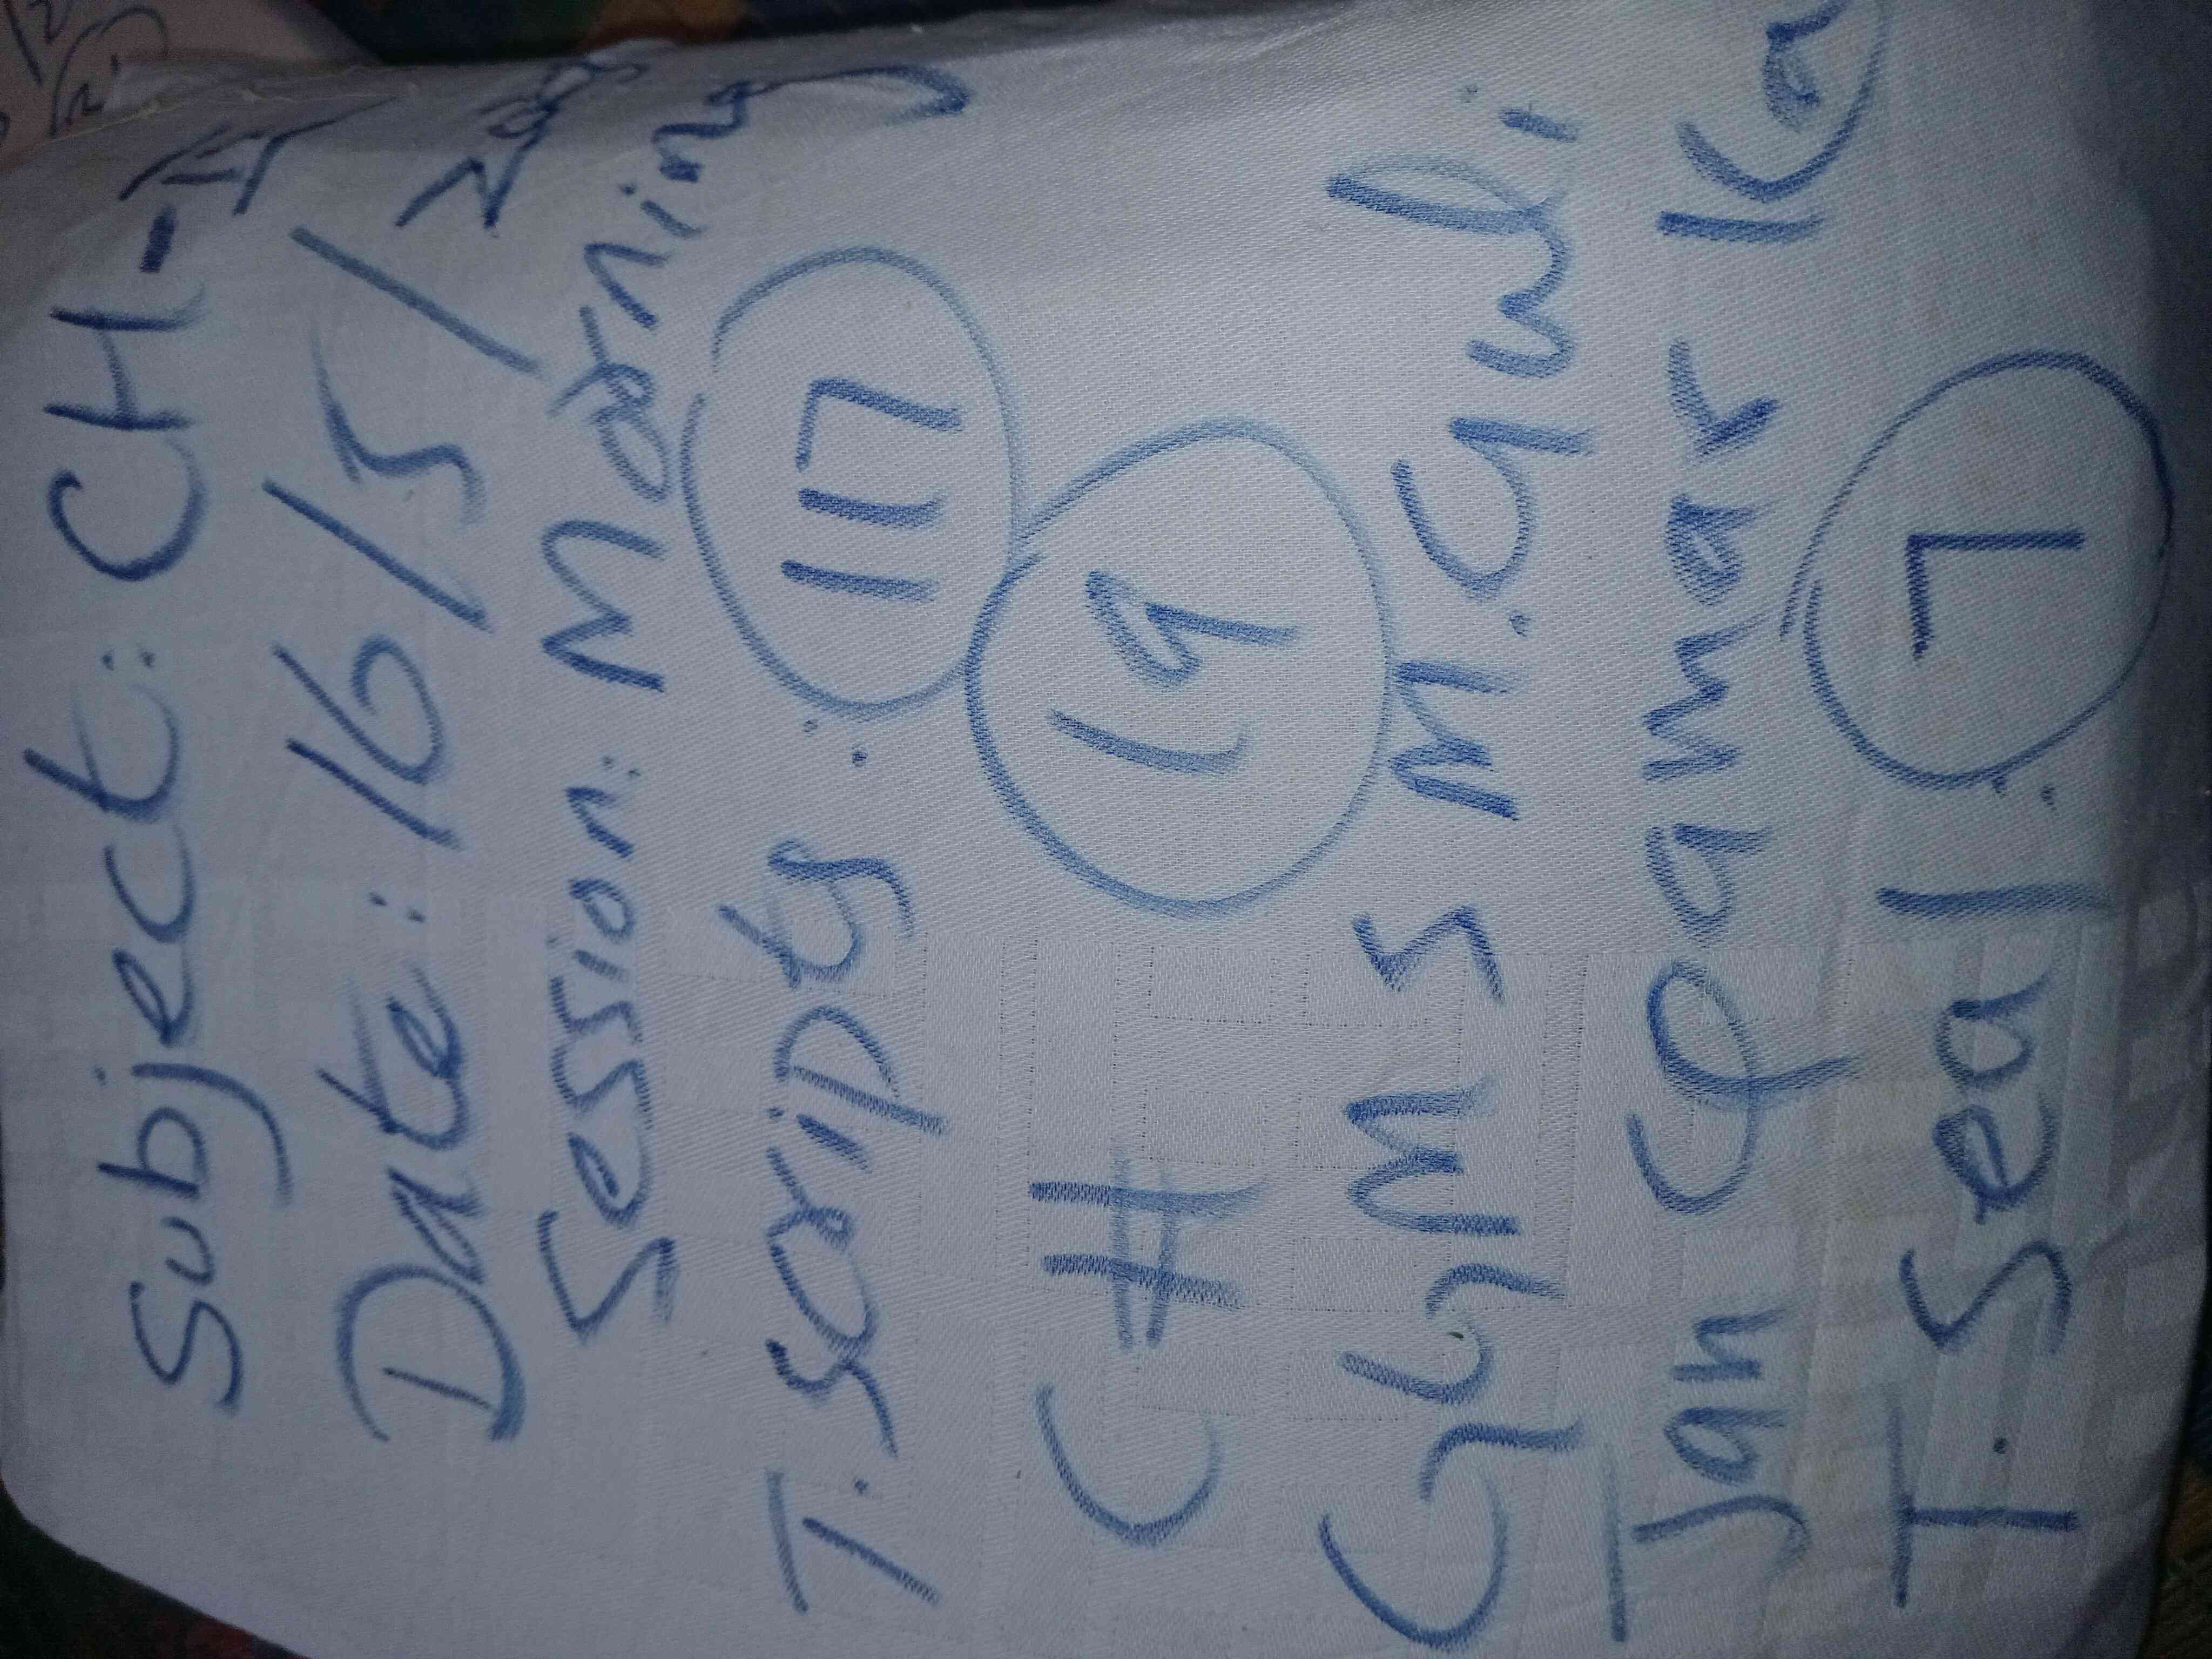 Subject: CH-II
Date: 16/5/
Session: Morning
T. Scripts: 117
C# 19
GHMS M. Quli
Jan Qamar Ka
T. Seal: 7